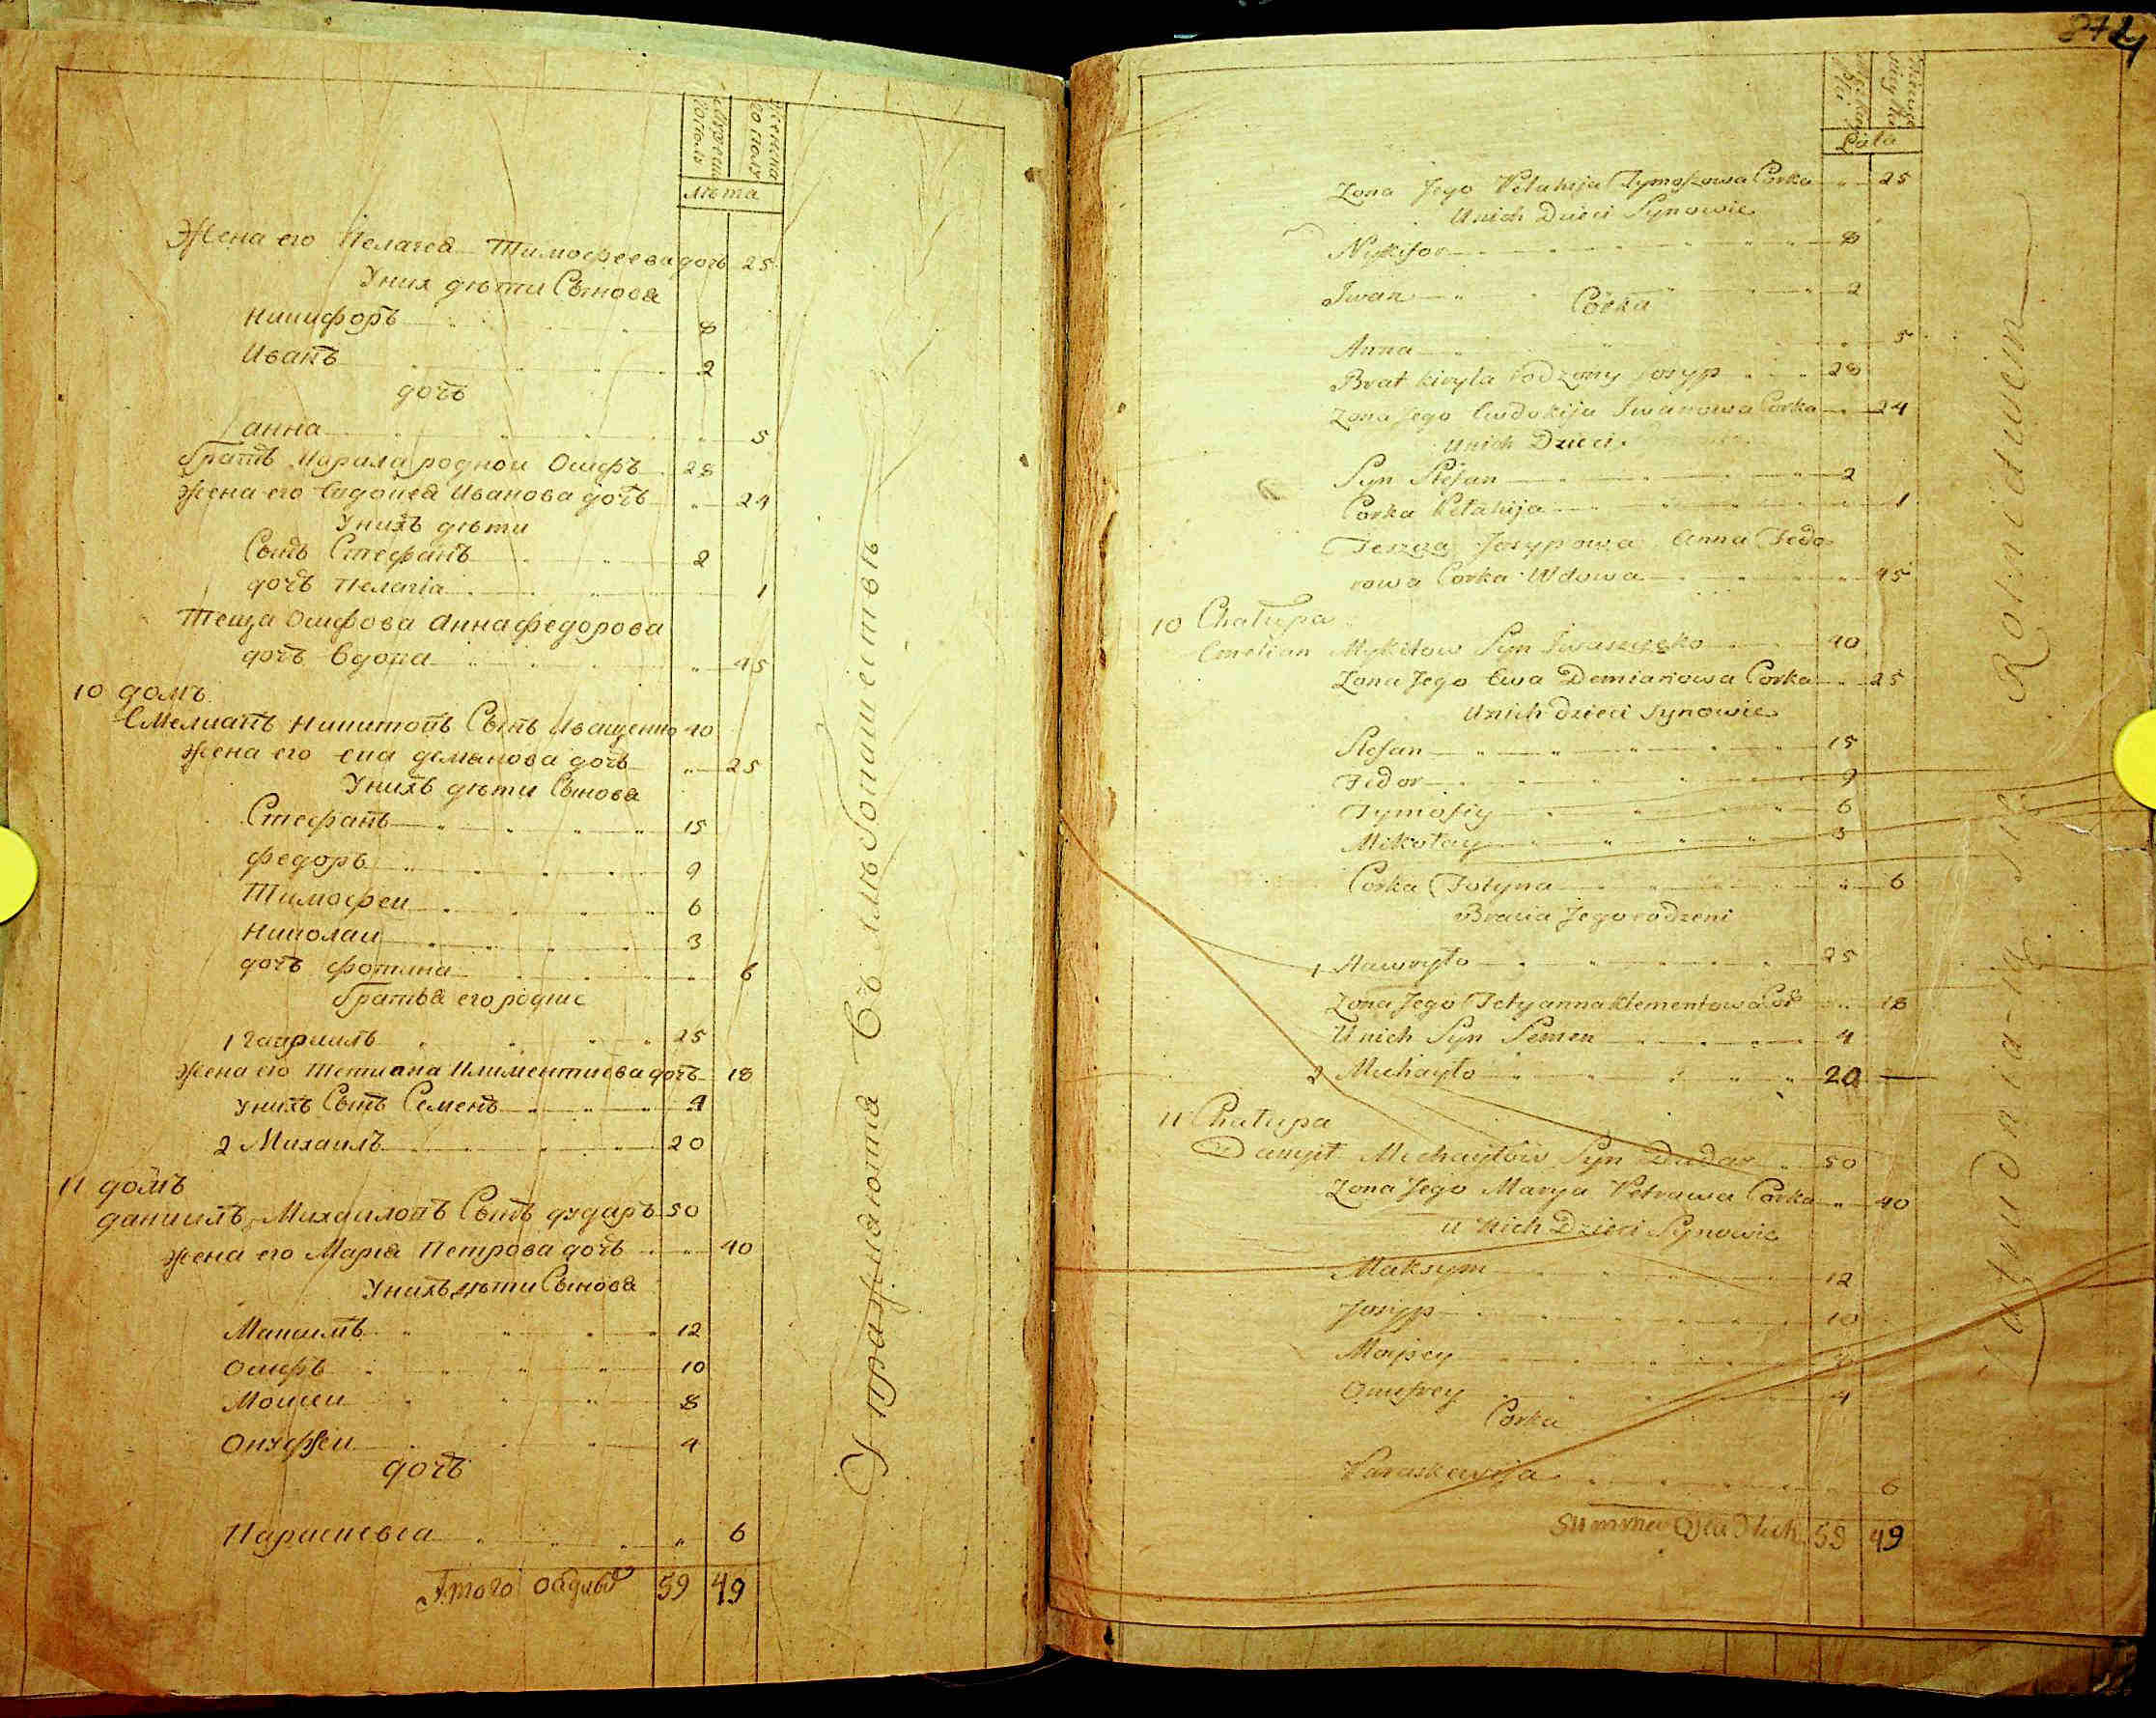 Мужеска
го полу
Женска
го полу
лѣта
Жена его Пелагея Тимофеева дочь 25
У них дѣти Сынова
Никифоръ 8
Иванъ 2
дочь
анна 5
братъ Кирила родной Осифъ 28
Жена его Евдокея Иванова дочь 24
У нихъ дѣти
Сынъ Стефанъ 2
дочь Пелагіа 1
Теща Осифова Анна федорова
дочь вдова 45
10 домъ
Емелианъ Никитовъ Сынъ Иващенко 40
Жена его ева демянова дочь 25
У нихъ дѣти Сынова
Стефанъ 15
федоръ 9
Тимофеи 6
Николаи 3
дочь фотина 6
братья его родние
1 гавриилъ 25
Жена его Тетиана Климентиева дочь 18
У нихъ Сынъ Семенъ 4
2 Михаилъ 20
11 домъ
даниилъ Михаиловъ Сынъ дударъ 50
Жена его Маріа Петрова дочь 40
У нихъ дѣти Сынова
Максимъ 12
Осифъ 10
Моисеи 8
Онуфреи 4
дочь
Параскевіа 6
Итого 59 49
Упражняются Въ хлѣбопашествѣ
Lata
Żona Jego Pelahija Tymoszowa Corka 25
U nich Dzieci Synowie
Nykifor 8
Iwan 2
Córka
Anna 5
Brat kiryla rodzony Josyp 28
Żona Jego Ewdokija Iwanowa Corka 24
U nich Dzieci
Syn Stefan 2
Corka Pelahija 1
Teszcza Josypowa Anna Fedo
rowa Corka Wdowa 45
10 Chałupa
Emelian Mykitow Syn Iwaszczęko 40
Żona Jego Ewa Demianowa Corka 25
U nich dzieci Synowie
Stefan 15
Fedor 9
Tymofiy 6
Mikołay 3
Corka Fotyna 6
Bracia Jego rodzeni
1 Hawryło 25
Żona Jego Tetyanna Klementowa Cor 18
U nich Syn Semen 4
2 Michayło 20
11 Chałupa
Danyił Michayłow Syn Dudar 50
Żona Jego Marya Petrowa Corka 40
U nich Dzieci Synowie
Maksym 12
Josyp 10
Moysey 8
Onufrey 4
Corka
Paraskewija 6
Summa 59 49
Zatrudnia-ią się Rolnictwem